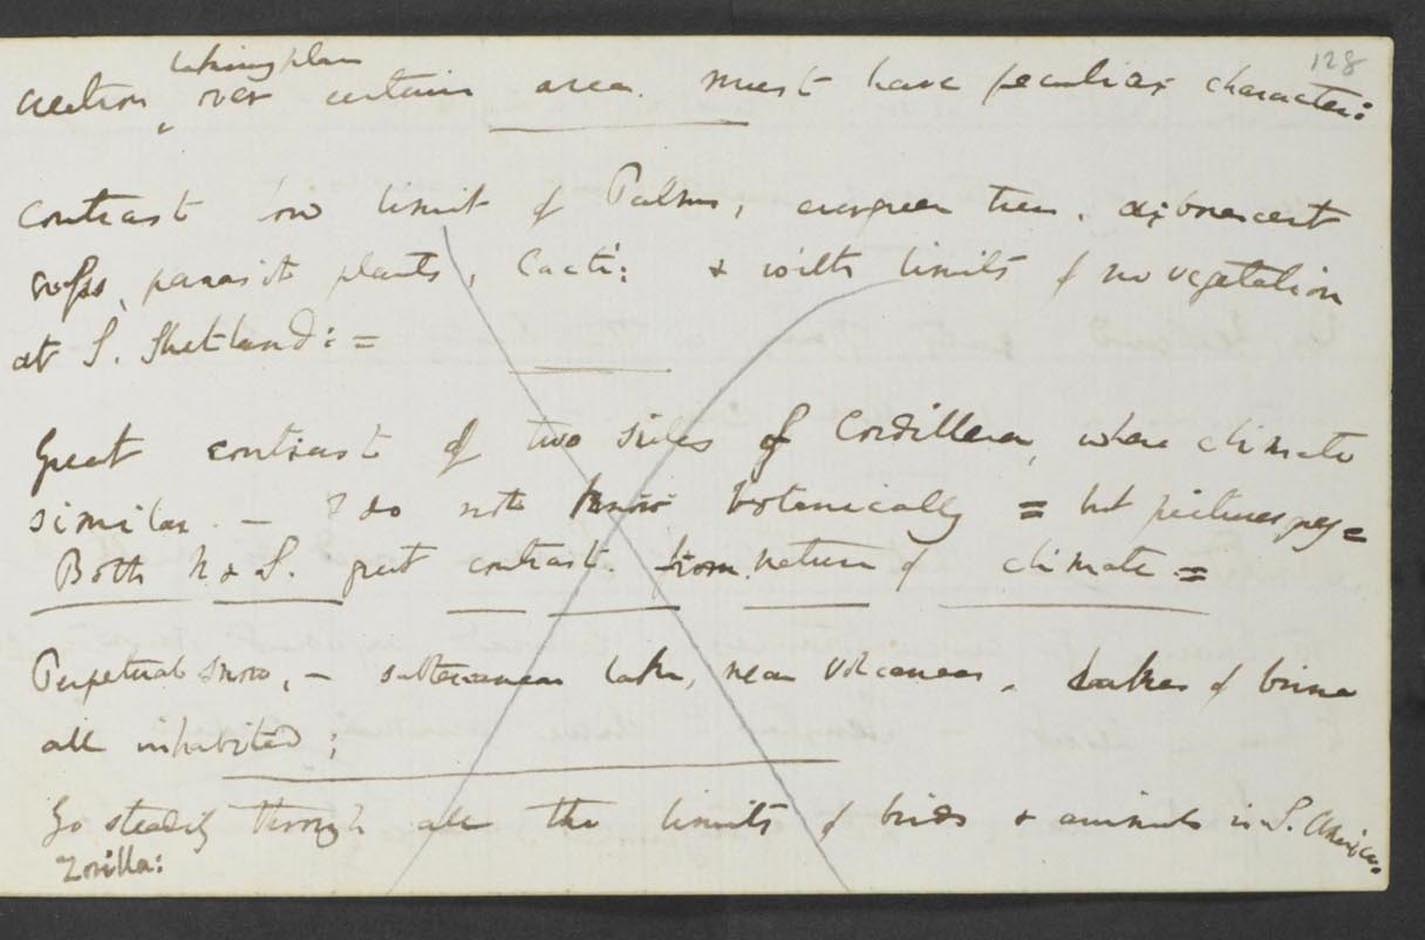 128
taking place
creation over certain area. must have peculiar character:
Contrast low limit of Palms, evergreen trees, arborescent
grasses, parasitic plants, Cacti: & with limits of no vegetation
at S. Shetland: =
Great contrast of two sides of Cordillera, where climate
similar. — I do not know botanically = but picturesquely =
Both N & S. great contrast. from nature of climate. =
Perpetual Snow, — subterranean lakes, near Volcanoes, Lakes of brine
all inhabited;
Go steadily through all the limits of birds & animals in S. America.
Zorilla: